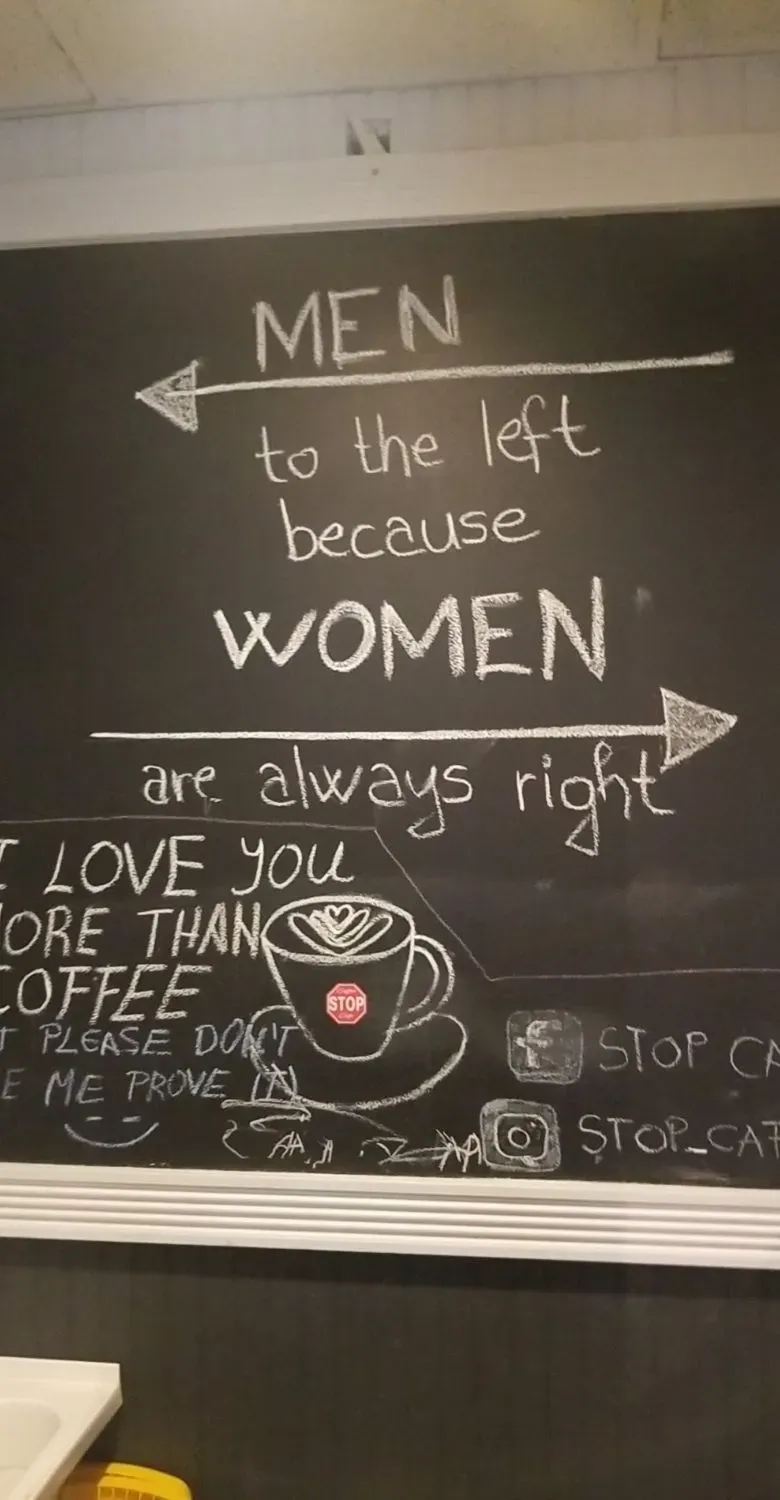 MEN
to the left
because
WOMEN
are always right
I LOVE YOU
ORE THAN
COFFEE
T PLEASE DON'T
E ME PROVE
STOP
STOP CA
STOP_CAF